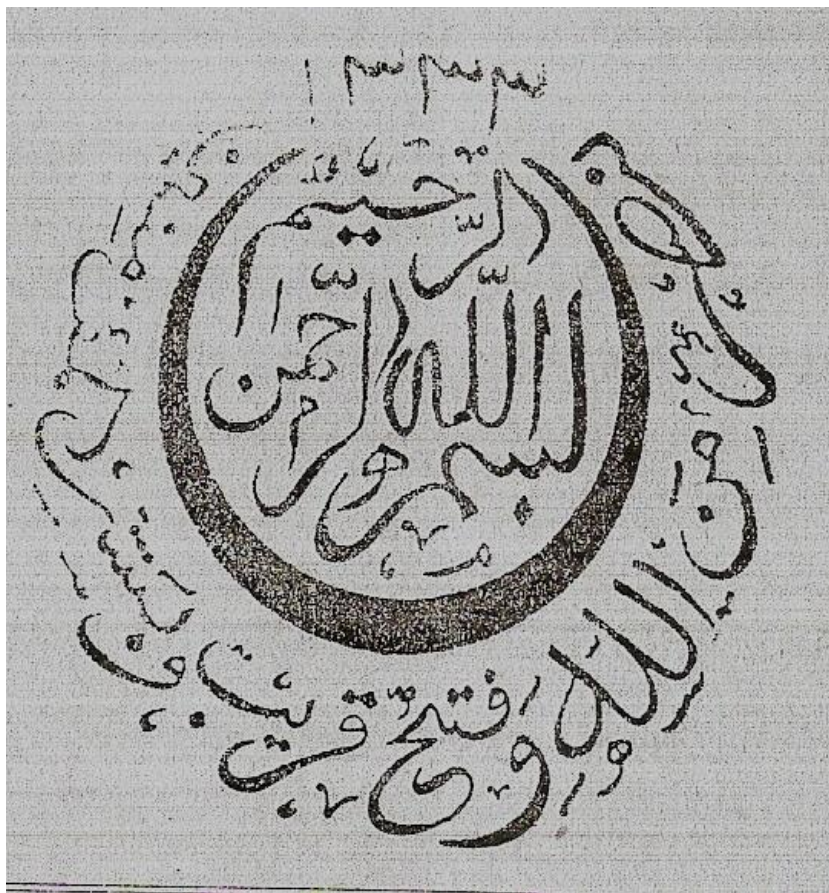 ١٣٣٣
بسم الله الرحمن الرحيم
نصر من الله وفتح قريب وبشر